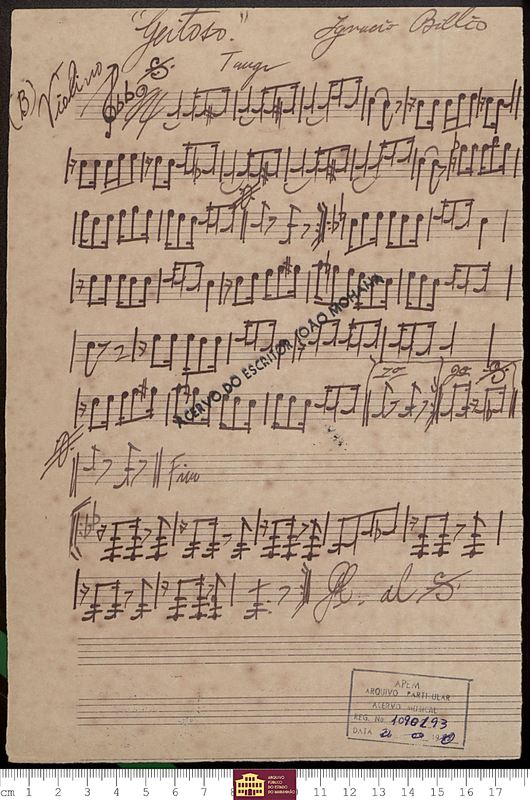 "Geitoso." Ignacio Billio
Tango
(B) Violino
ACERVO DO ESCRITOR JOÃO MOHANA
1ª 2ª
Fim
al
APEM
ARQUIVO PARTICULAR
ACERVO MUSICAL
REG. No. 1090293
DATA
cm 1 2 3 4 5 6 7 8 11 12 13 14 15 16 17
ARQUIVO
PÚBLICO
DO ESTADO
DO MARANHÃO